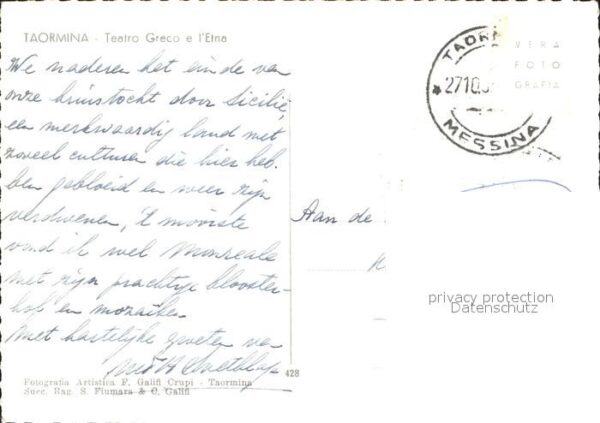 TAORMINA - Teatro Greco e l'Etna
We naderen het einde van
onze kruistocht door Sicilië,
een merkwaardig land met
zoveel culturen die hier heb-
ben gebloeid en weer zijn
verdwenen, 't mooiste
vond ik wel Monreale
met zijn prachtige klooster-
hof en mozaiken
Met hartelijke groeten van
428
Fotografia Artistica F. Galifi Crupi - Taormina
Succ. Rag. S. Fiumara & C. Galifi
TAOR
27 10
MESSINA
VERA
FOTO
GRAFIA
Aan de
privacy protection
Datenschutz